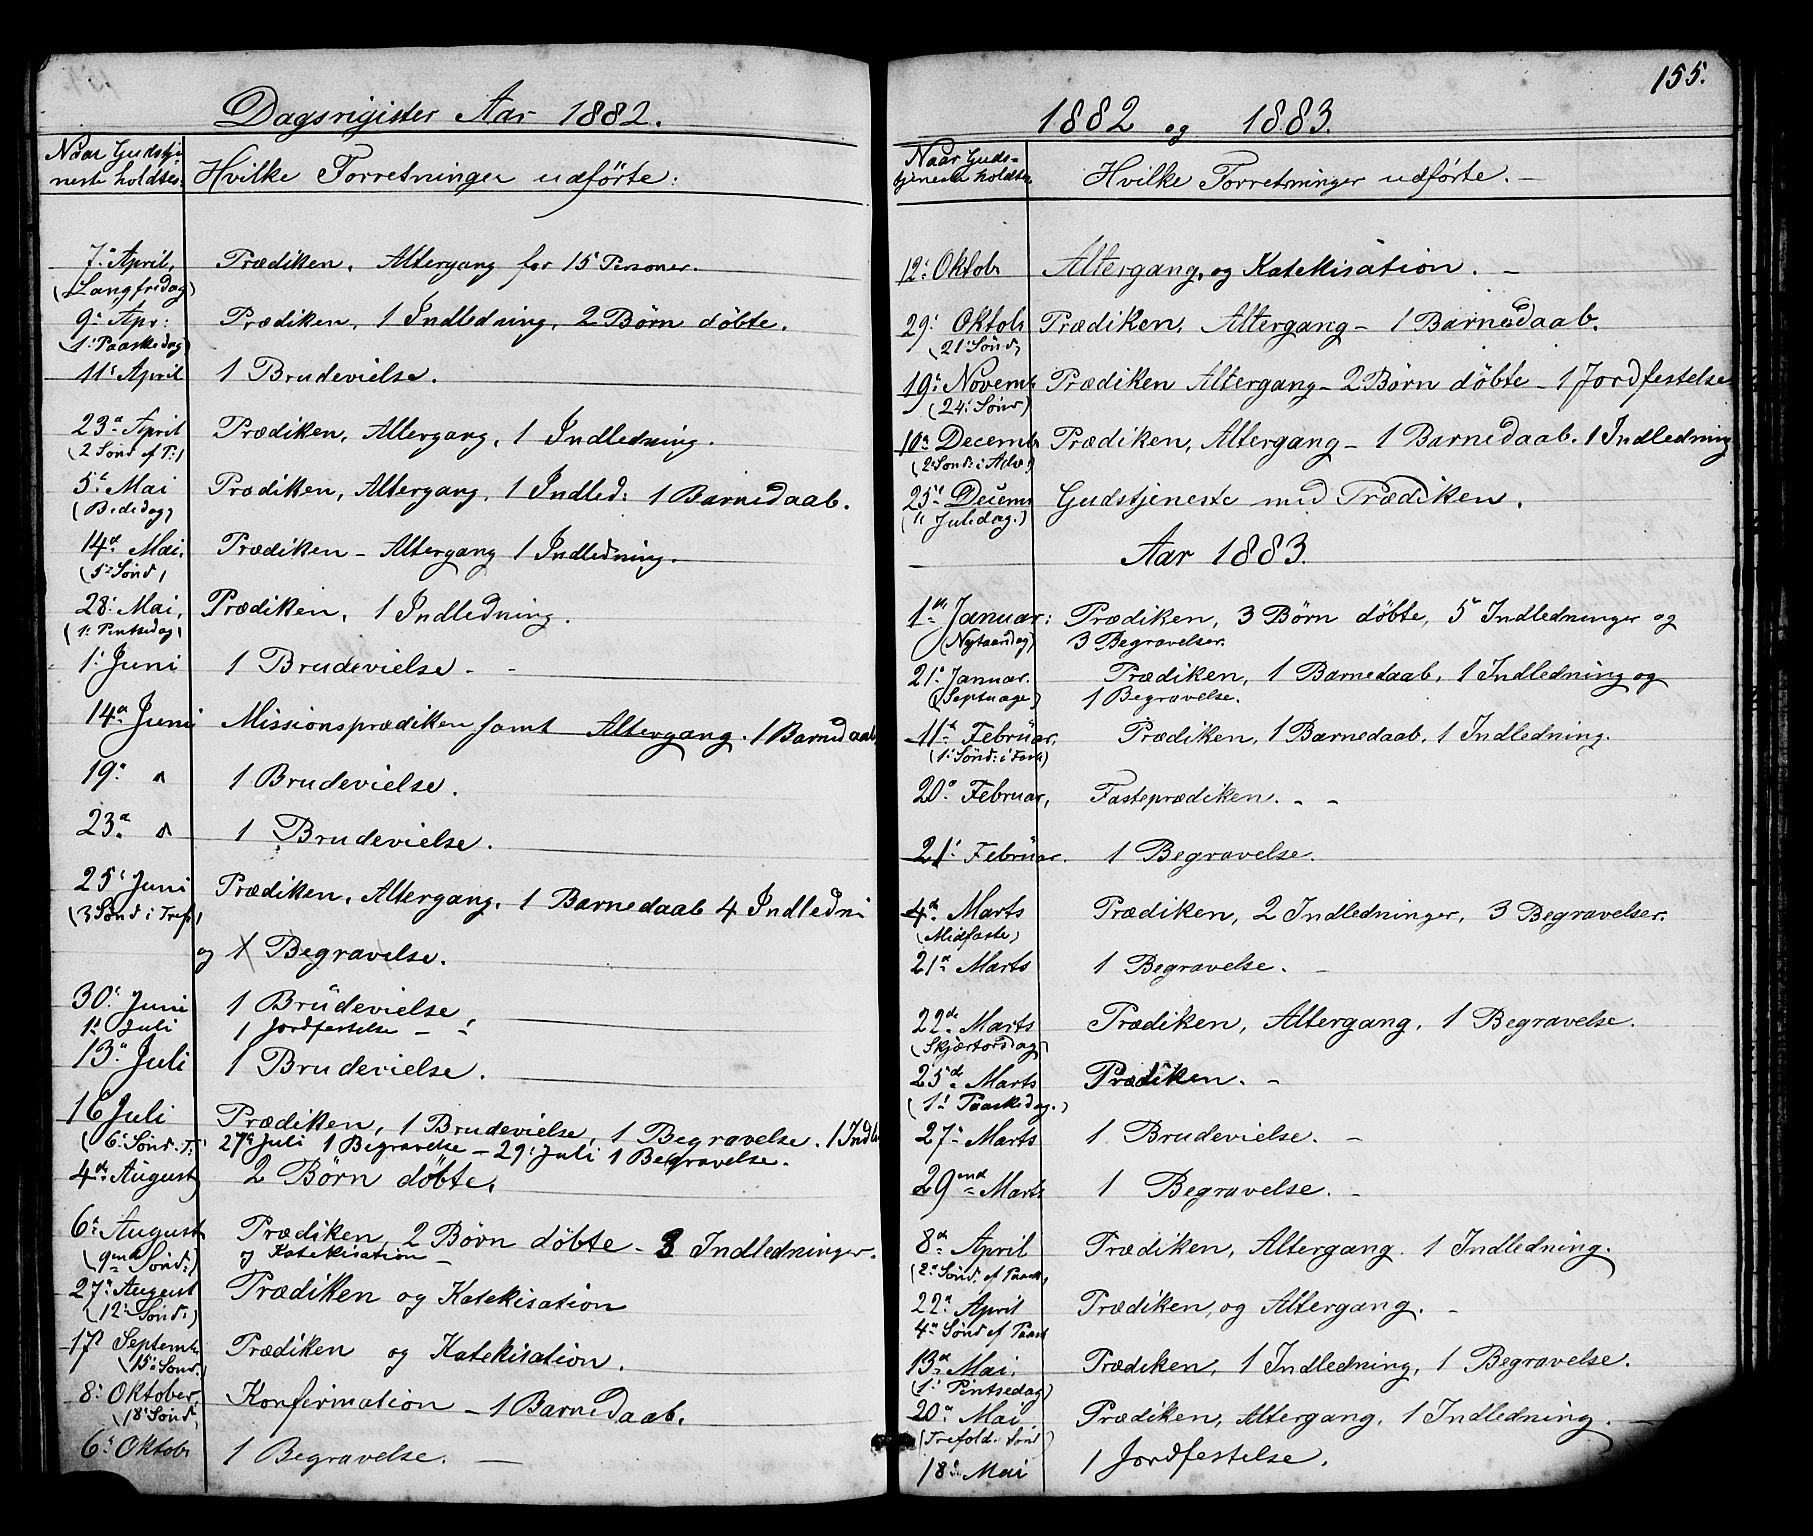 Dagsregister Aar 1882.
Naar Gudstje
neste holdtes.
Hvilke Forretninger udførte:
7de April, Prædiken, Altergang for 15 Personer.
(Langfredag)
9de Apr: Prædiken, 1 Indledning, 2 Børn døbte.
(1ste Paaskedag)
11te April 1 Brudevielse.
23de April Prædiken, Altergang, 1 Indledning.
(2 Sønd ef P:)
5te Mai Prædiken, Altergang, 1 Indled: 1 Barnedaab.
(Bededag)
14de Mai, Prædiken – Altergang 1 Indledning.
(5te Sønd)
28: Mai, Prædiken, 1 Indledning.
(1: Pintsedag)
1: Juni 1 Brudevielse. –
14de Juni Missionsprædiken samt Altergang. 1 Barnedaab
19de " 1 Brudevielse.
23de " 1 Brudevielse.
25: Juni Prædiken, Altergang, 1 Barnedaab 4 Indledni
(3 Sønd i Tref)
og 1 Begravelse.
30: Juni 1 Brudevielse.
1: Juli 1 Jordfestelse –
13: Juli 1 Brudevielse.
16 Juli Prædiken, 1 Brudevielse, 1 Begravelse. 1 Indl
(6: Sønd. T: 27de Juli 1 Begravelse – 29: Juli 1 Begravelse.
4de August 2 Børn døbte.
6: August Prædiken, 2 Børn døbte – 3 Indledninger.
(9nde Sønd:) og Katekisation –
27: August Prædiken og Katekisation
(12: Sønd:)
17: Septemb Prædiken og Katekisation.
(15: Sønd.)
8: Oktober Konfirmation – 1 Barnedaab.
(18: Sønd)
6: Oktob 1 Begravelse. –
155.
1882 og 1883.
Naar Guds-
tjeneste holdtes
Hvilke Forretninger udførte. –
12: Oktob Altergang, og Katekisation. –
29: Oktob Prædiken, Altergang – 1 Barnedaab.
(21: Sønd)
19: Novemb Prædiken Altergang – 2 Børn døbte – 1 Jordfestelse
(24: Sønd)
10de Decemb Prædiken, Altergang – 1 Barnedaab. 1 Indledning
(2: Sønd: i Adv)
25de Decemb Gudstjeneste med Prædiken.
(1ste Juledag.)
Aar 1883.
1ste Januar: Prædiken, 3 Børn døbte, 5 Indledninger og
(Nytaarsdag) 3 Begravelser.
21: Januar. Prædiken, 1 Barnedaab, 1 Indledning og
(Septuage) 1 Begravelse.
11te Februar, Prædiken, 1 Barnedaab, 1 Indledning.
(1: Sønd: i Fast)
20: Februar, Fasteprædiken. – –
21: Februar. 1 Begravelse.
4de Marts Prædiken, 2 Indledninger, 3 Begravelser.
(Midfaste)
21de Marts 1 Begravelse. –
22de Marts Prædiken, Altergang, 1 Begravelse.
(Skjærtorsdag)
25de Marts Prædiken. –
(1: Paaskedag.)
27: Marts 1 Brudevielse. –
29nd Marts 1 Begravelse. –
8de April Prædiken, Altergang. 1 Indledning.
(2: Sønd. ef Paask)
22: April Prædiken, og Altergang. –
4de Sønd ef Paask
13de Mai, Prædiken, 1 Indledning, 1 Begravelse.
(1: Pintsedag)
20de Mai Prædiken, Altergang, 1 Indledning. –
(Trefold. Sønd)
18: Mai 1 Jordfestelse.